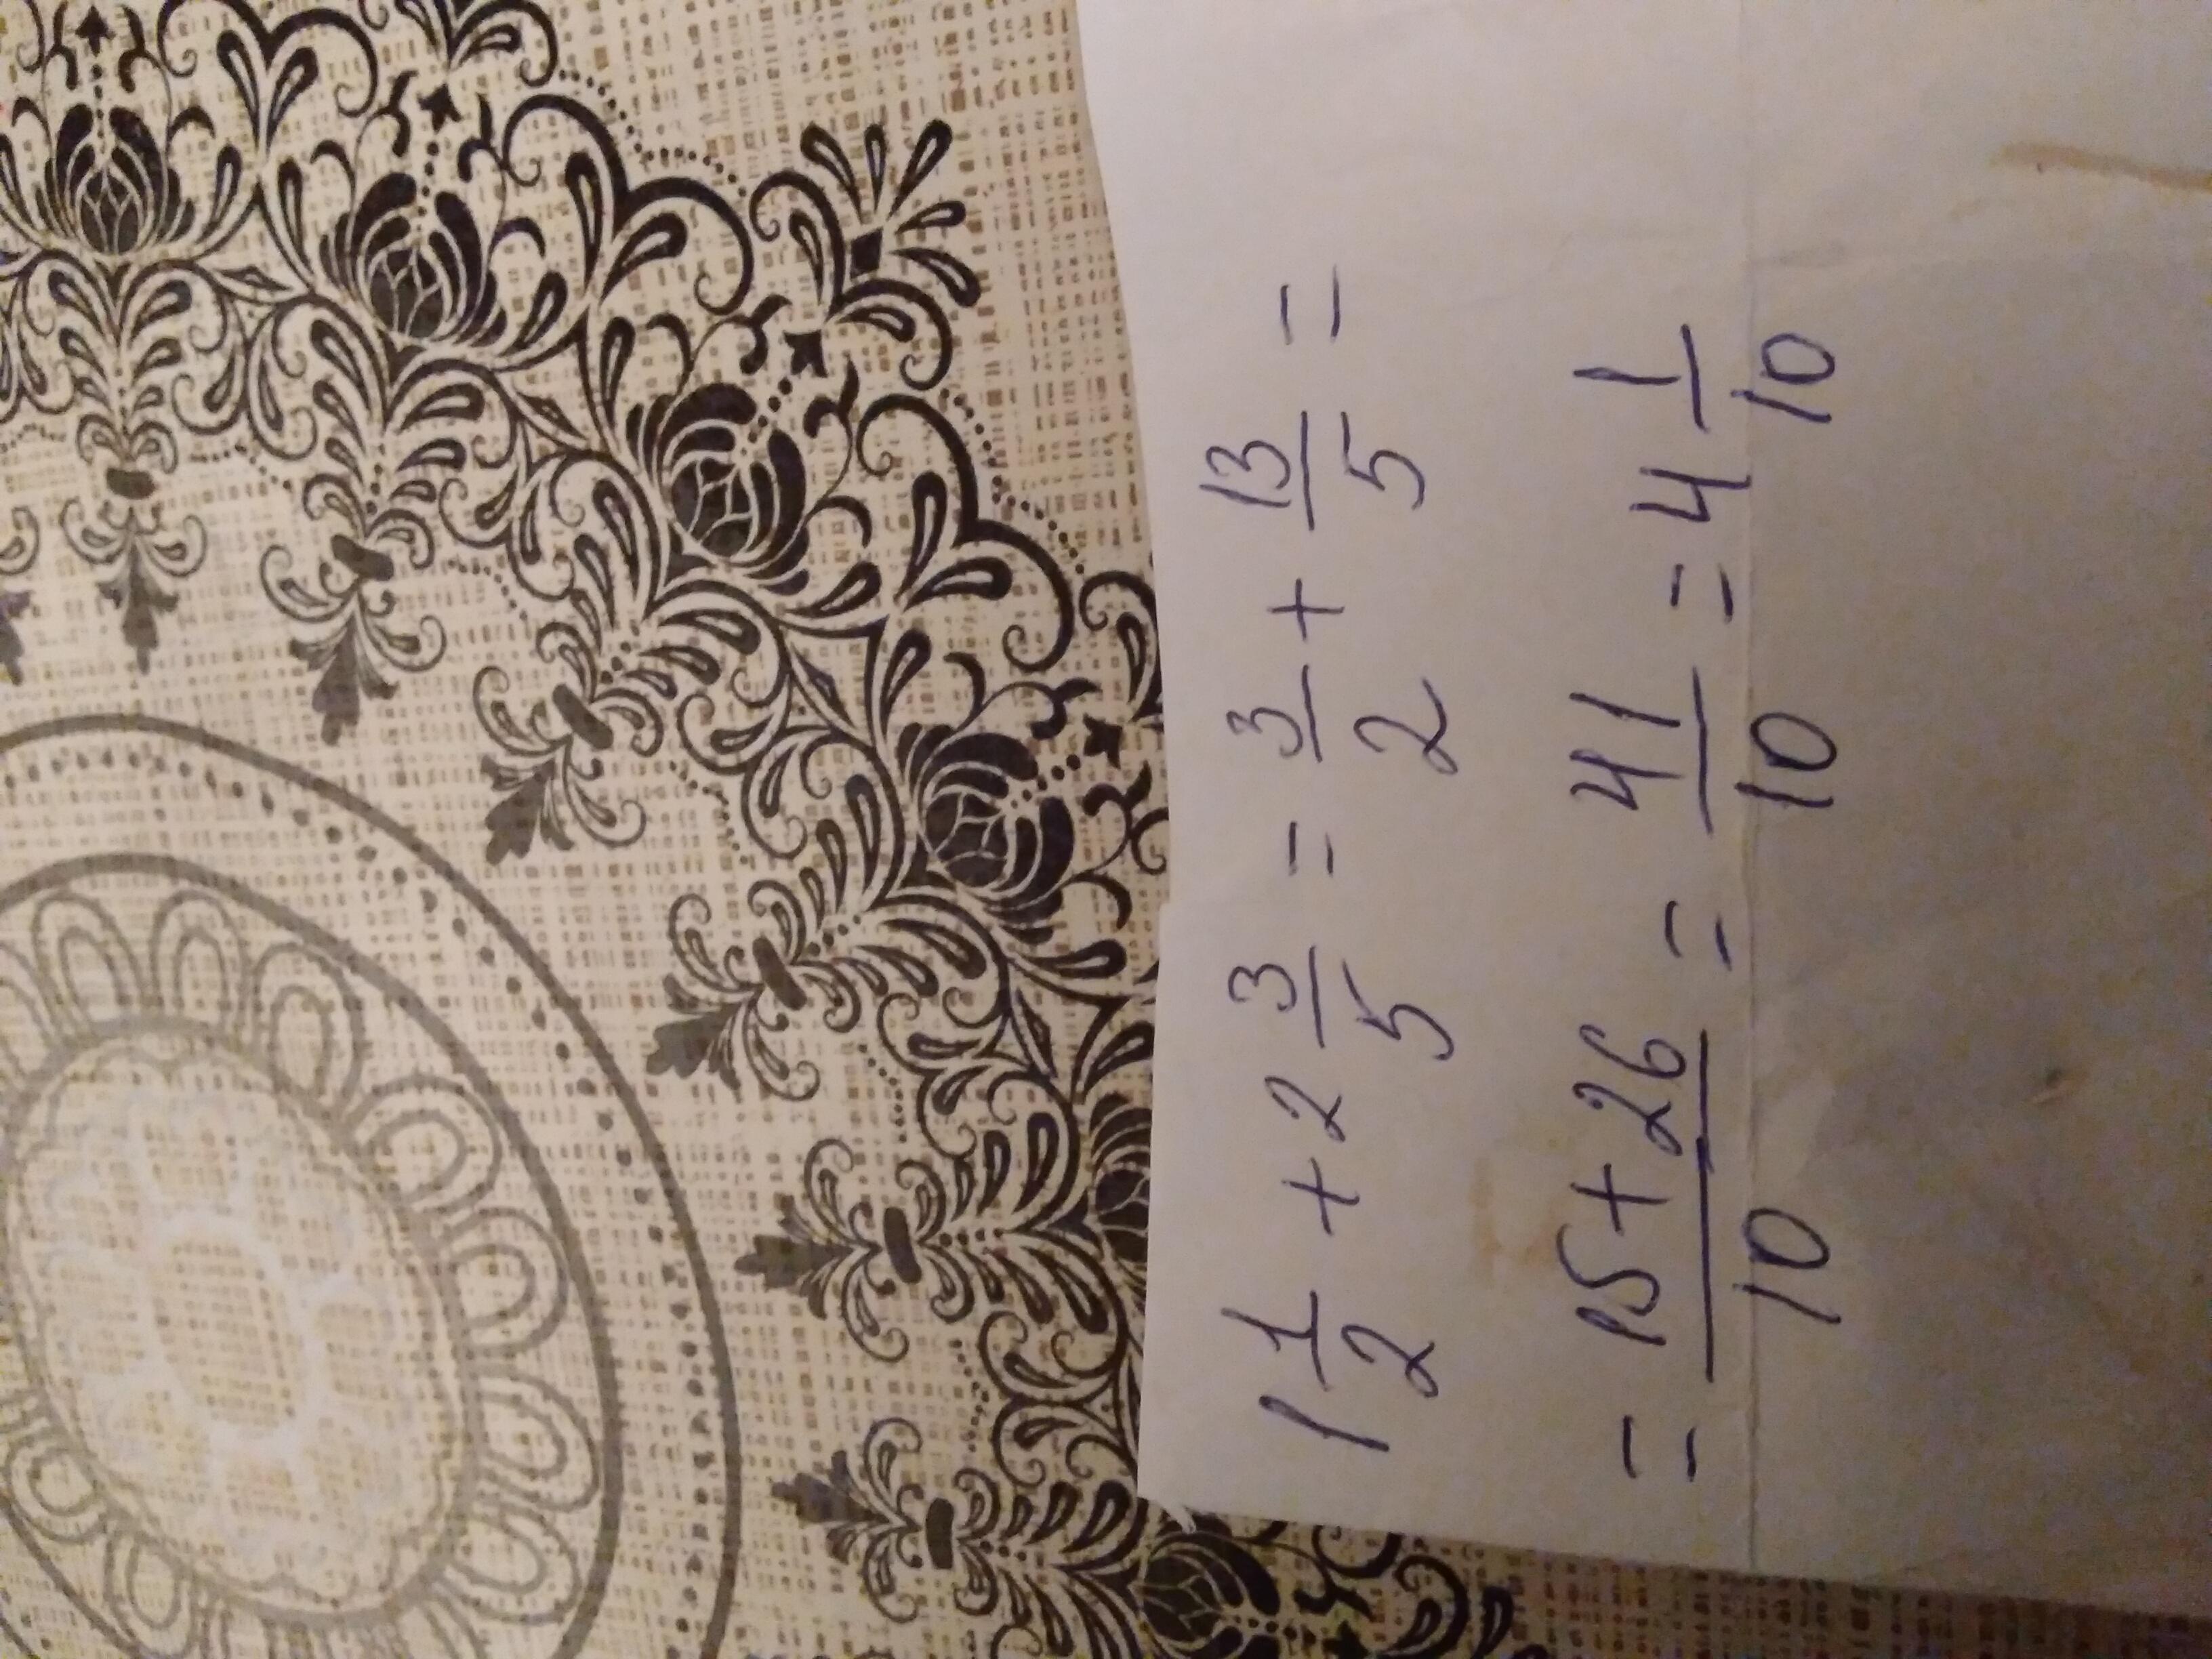 1 1/2 + 2 3/5 = 3/2 + 13/5 =
= 15+26/10 = 41/10 = 4 1/10